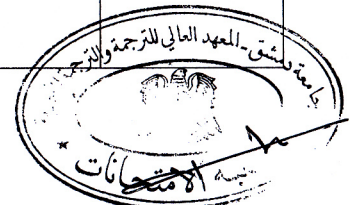 جامعة دمشق - المعهد العالي للترجمة والترجمة
الامتحانات